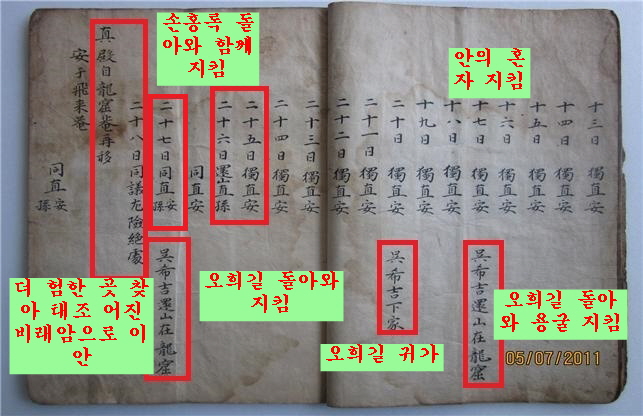 손홍록 돌
아와 함께
지킴
안의 혼
자 지킴
十三日 獨直安
十四日 獨直安
十五日 獨直安
十六日 獨直安
十七日 獨直安 吳希吉還山在龍窟
十八日 獨直安
十九日 獨直安
二十日 獨直安 吳希吉下家
二十一日 獨直安
二十二日 獨直安
二十三日 獨直安
二十四日 獨直安
二十五日 獨直安
二十六日 還山直孫
同直安
二十七日 同直安孫 吳希吉還山在龍窟
二十八日同議尤險絶處
真殿自龍窟菴再移
安于飛來菴
同直安孫
더 험한 곳 찾
아 태조 어진
비래암으로 이
안
오희길 돌아와
지킴
오희길 귀가
오희길 돌아
와 용굴 지킴
05/07/2011